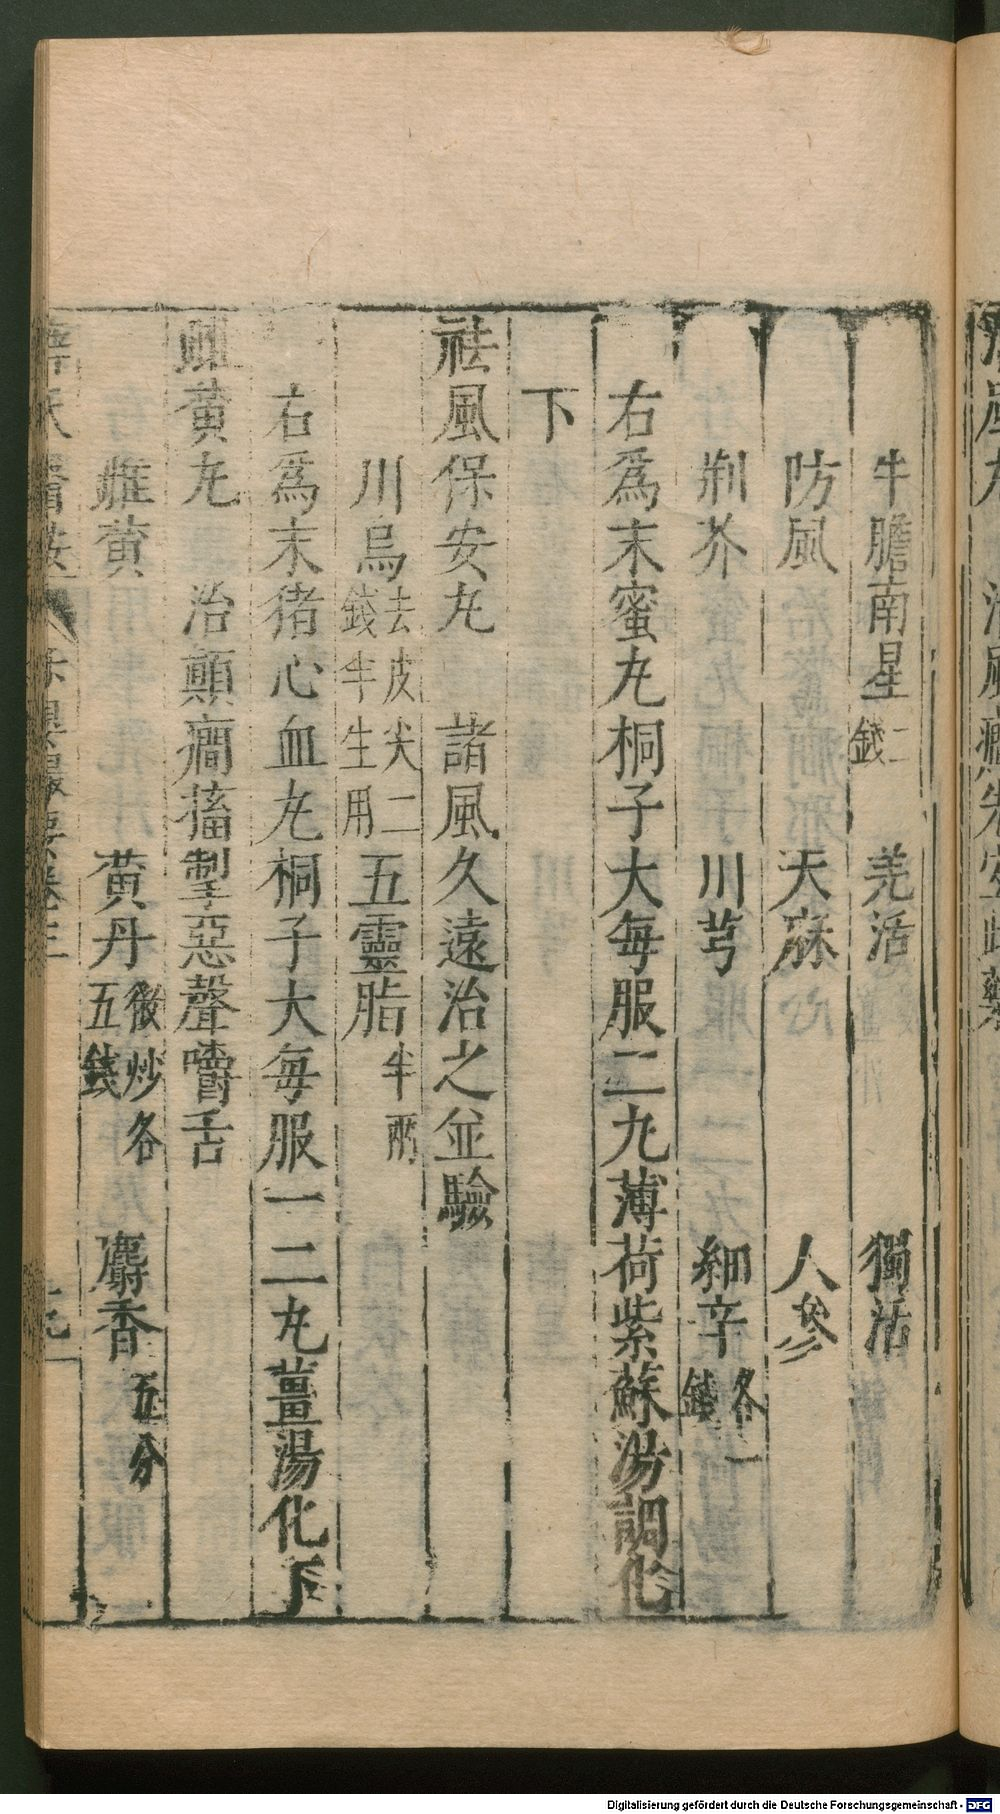 牛膽南星二錢　羌活　獨活
防風　天麻　人參
荆芥　川芎　細辛各一錢
右爲末蜜丸桐子大每服二丸薄荷紫蘇湯調化
下
祛風保安丸　諸風久遠治之並驗
川烏去皮尖二錢半生用　五靈脂半兩
右爲末猪心血丸桐子大每服一二丸薑湯化下
黃丸　治顛癎搐掣惡聲嚼舌
雌黃　黃丹微炒各五錢　麝香五分
Digitalisierung gefördert durch die Deutsche Forschungsgemeinschaft - DFG